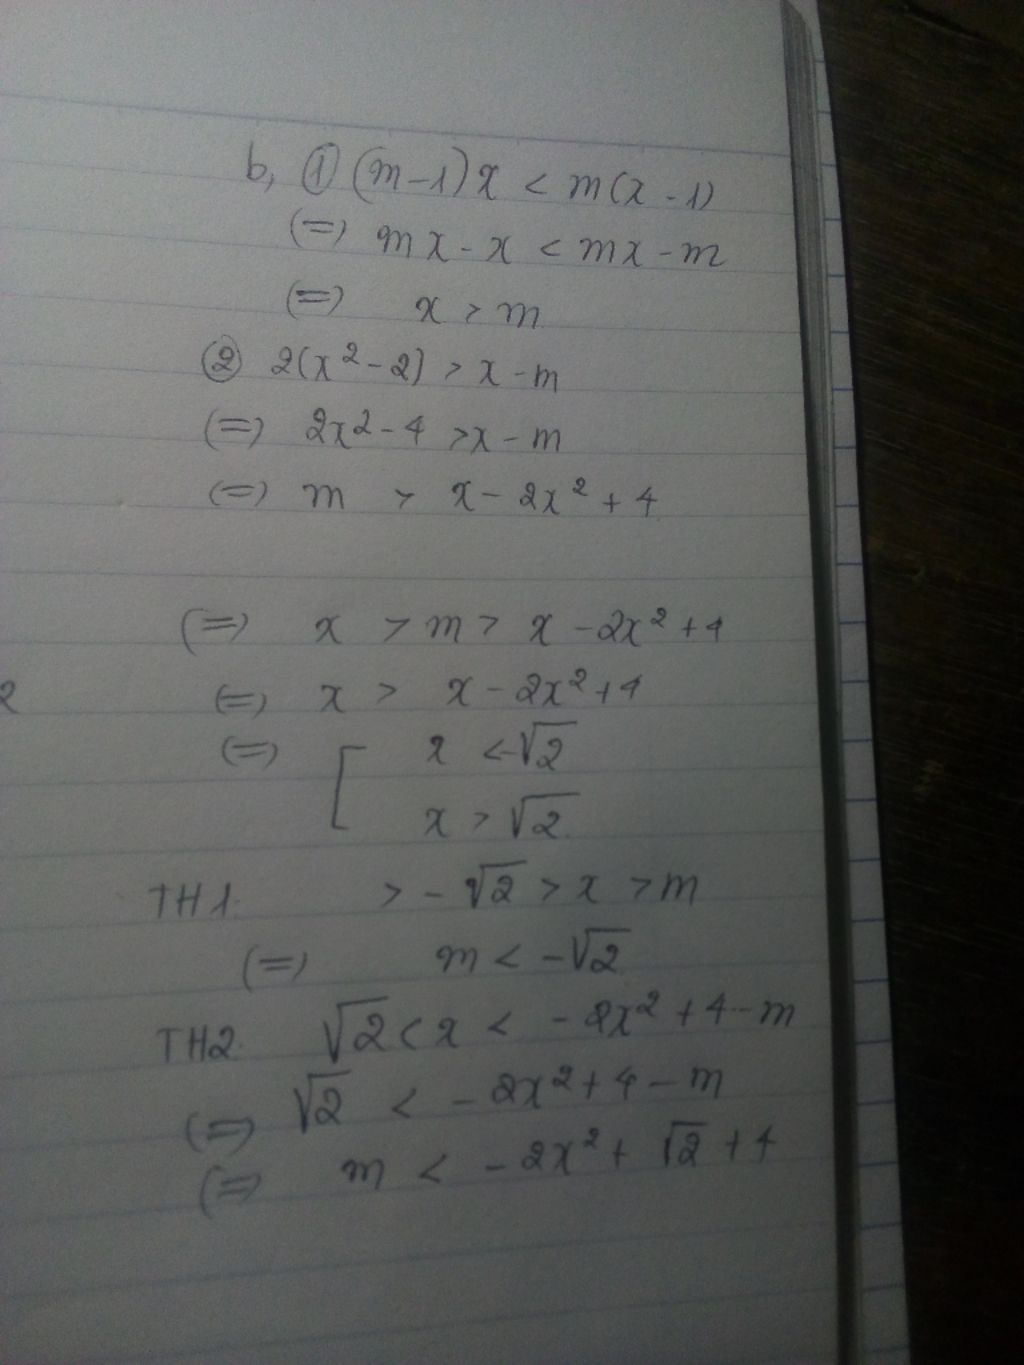 b, ① (m-1)x < m(x-1)
(=) mx - x < mx - m
(=) x > m
② 2(x² - 2) > x - m
(=) 2x² - 4 > x - m
(=) m > x - 2x² + 4
(=) x > m > x - 2x² + 4
2
(=) x > x - 2x² + 4
(=) [ x < -√2
x > √2
TH1. > -√2 > x > m
(=) m < -√2
TH2. √2 < x < -2x² + 4 - m
(=) √2 < -2x² + 4 - m
(=) m < -2x² + √2 + 4